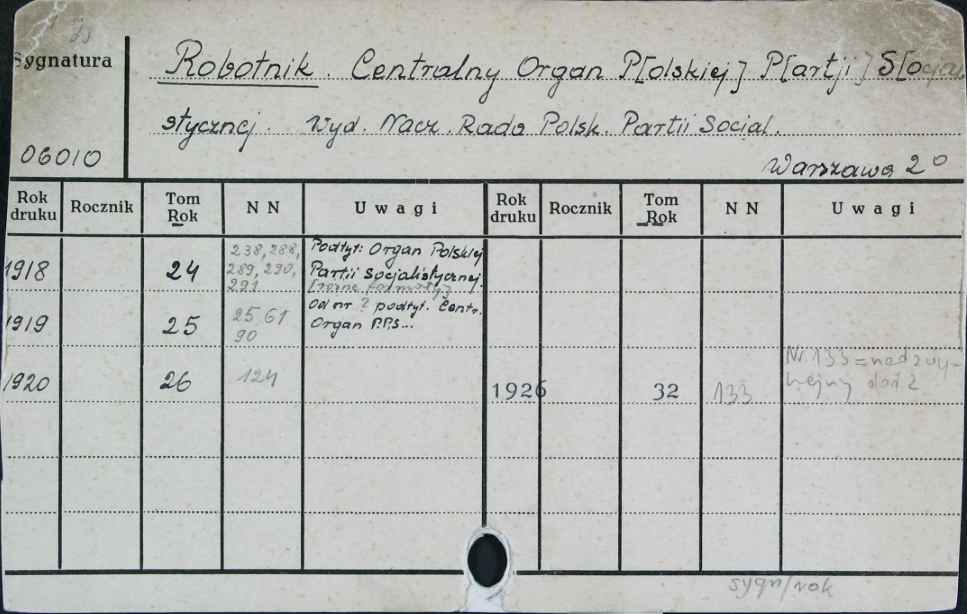 Sygnatura
Robotnik. Centralny Organ P[olskiej] P[artji] S[ocjali
stycznej. Wyd. Nacz. Rada Polsk. Partii Social.
06010
Warszawa 2°
Rok druku Rocznik Tom Rok N N Uwagi Rok druku Rocznik Tom Rok N N Uwagi
1918 24 238, 288, 289, 290, 291 Podtyt: Organ Polskiej
Partii Socjalistycznej.
[różne formaty]
1919 25 25 61 90 Od nr ? podtyt. Centr.
Organ P.P.S...
1920 26 124
1926 32 133 Nr. 133 = nadzwy-
czajny dod.
sygn/rok